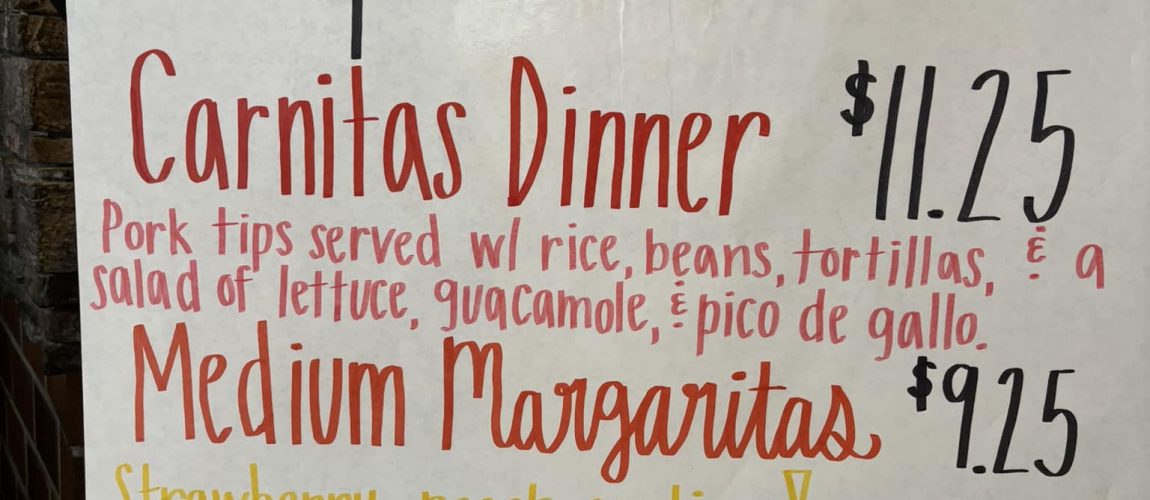 Carnitas Dinner $11.25
Pork tips served w/ rice, beans, tortillas, & a
salad of lettuce, guacamole, & pico de gallo.
Medium Margaritas $9.25
Strawberry